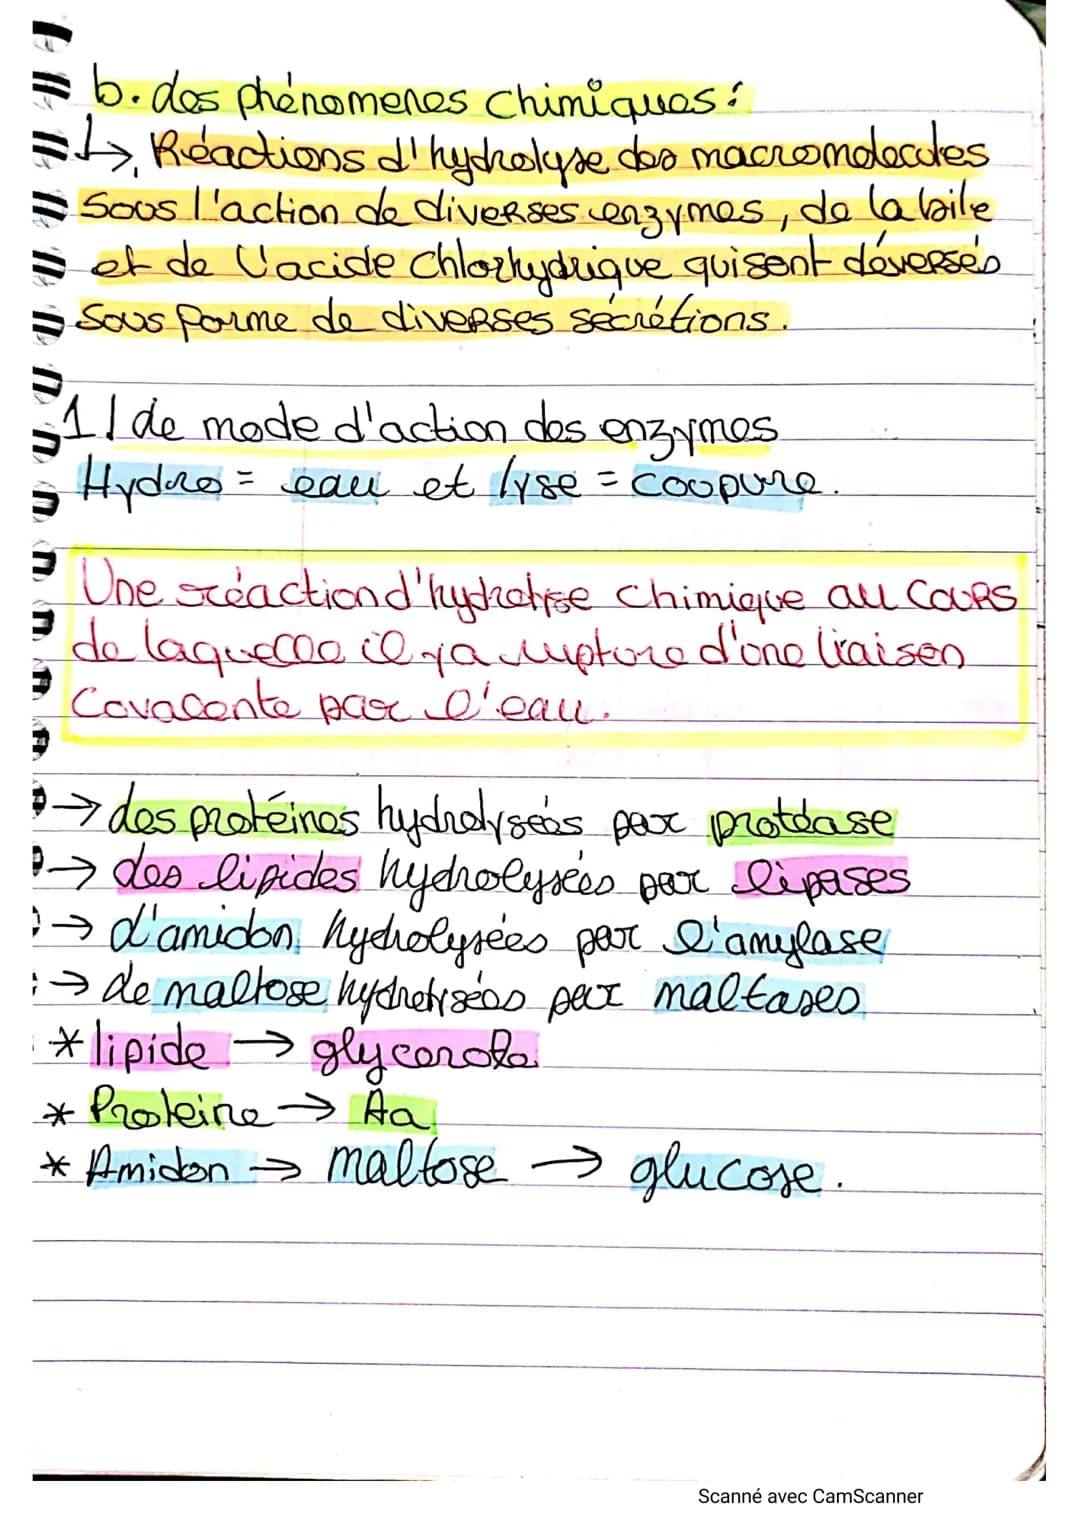 b. des phénomenes chimiques :
↳ Réactions d'hydrolyse des macromolecules
sous l'action de diverses enzymes, de la bile
et de l'acide chlorhydrique qui sont déversés
sous forme de diverses sécrétions.
1/ de mode d'action des enzymes
Hydro = eau et lyse = coupure.
Une réaction d'hydrolyse chimique au cours
de laquelle il y a rupture d'une liaison
Covalente par l'eau.
→ des protéines hydrolysées par protéase
→ des lipides hydrolysées par lipases
→ d'amidon hydrolysées par l'amylase
→ de maltose hydrolysées par maltases
* lipide → glycerole
* Proteine → Aa
* Amidon → maltose → glucose.
Scanné avec CamScanner